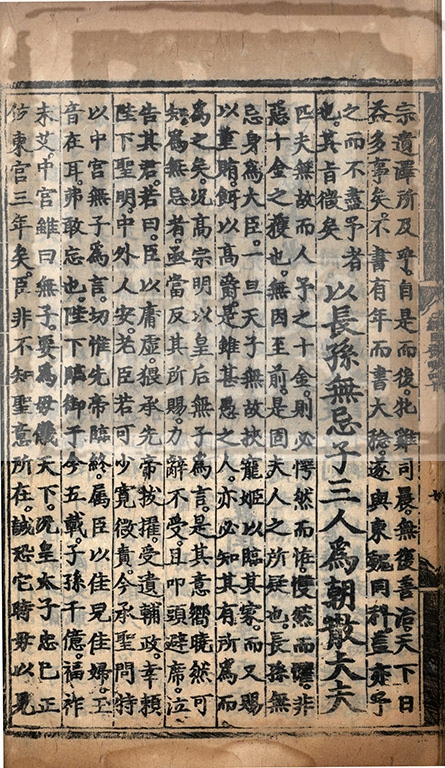 宗遺澤所及乎。自是而後。牝雞司晨。無復善治。天下日
益多事矣。不書有年而書大稔。遂與東魏同科。豈亦予
之而不盡予者
也。其旨微矣
以長孫無忌子三人爲朝散大夫
匹夫無故而人予之十金。則必愕然而悟。戄然而懼。非
惡十金之獲也。無因至前。是固夫人之所疑也。長孫無
忌身爲大臣。一旦天子無故挾寵姬以臨其家。而又賜
以重賄。餌以高爵。是雖甚愚之人。亦必知其有所爲而
爲之矣。況高宗明以皇后無子爲言。是其意嚮曉然可
知。爲無忌者。亟當反其所賜。力辭不受。且叩頭避席。泣
告其君。若曰。臣以庸虛。猥承先帝拔擢。受遺輔政。幸賴
陛下聖明。中外人安。老臣若可少寬責。今承聖問。特
以中宮無子爲言。切惟先帝臨終。屬臣以佳兒佳婦。玉
音在耳。弗敢忘也。陛下臨御于今五載。子孫千億。福祚
未艾。中宮雖曰無子。要爲母儀天下。況皇太子忠已正
位東宮三年矣。臣非不知聖意所在。誠恐它時毋以見